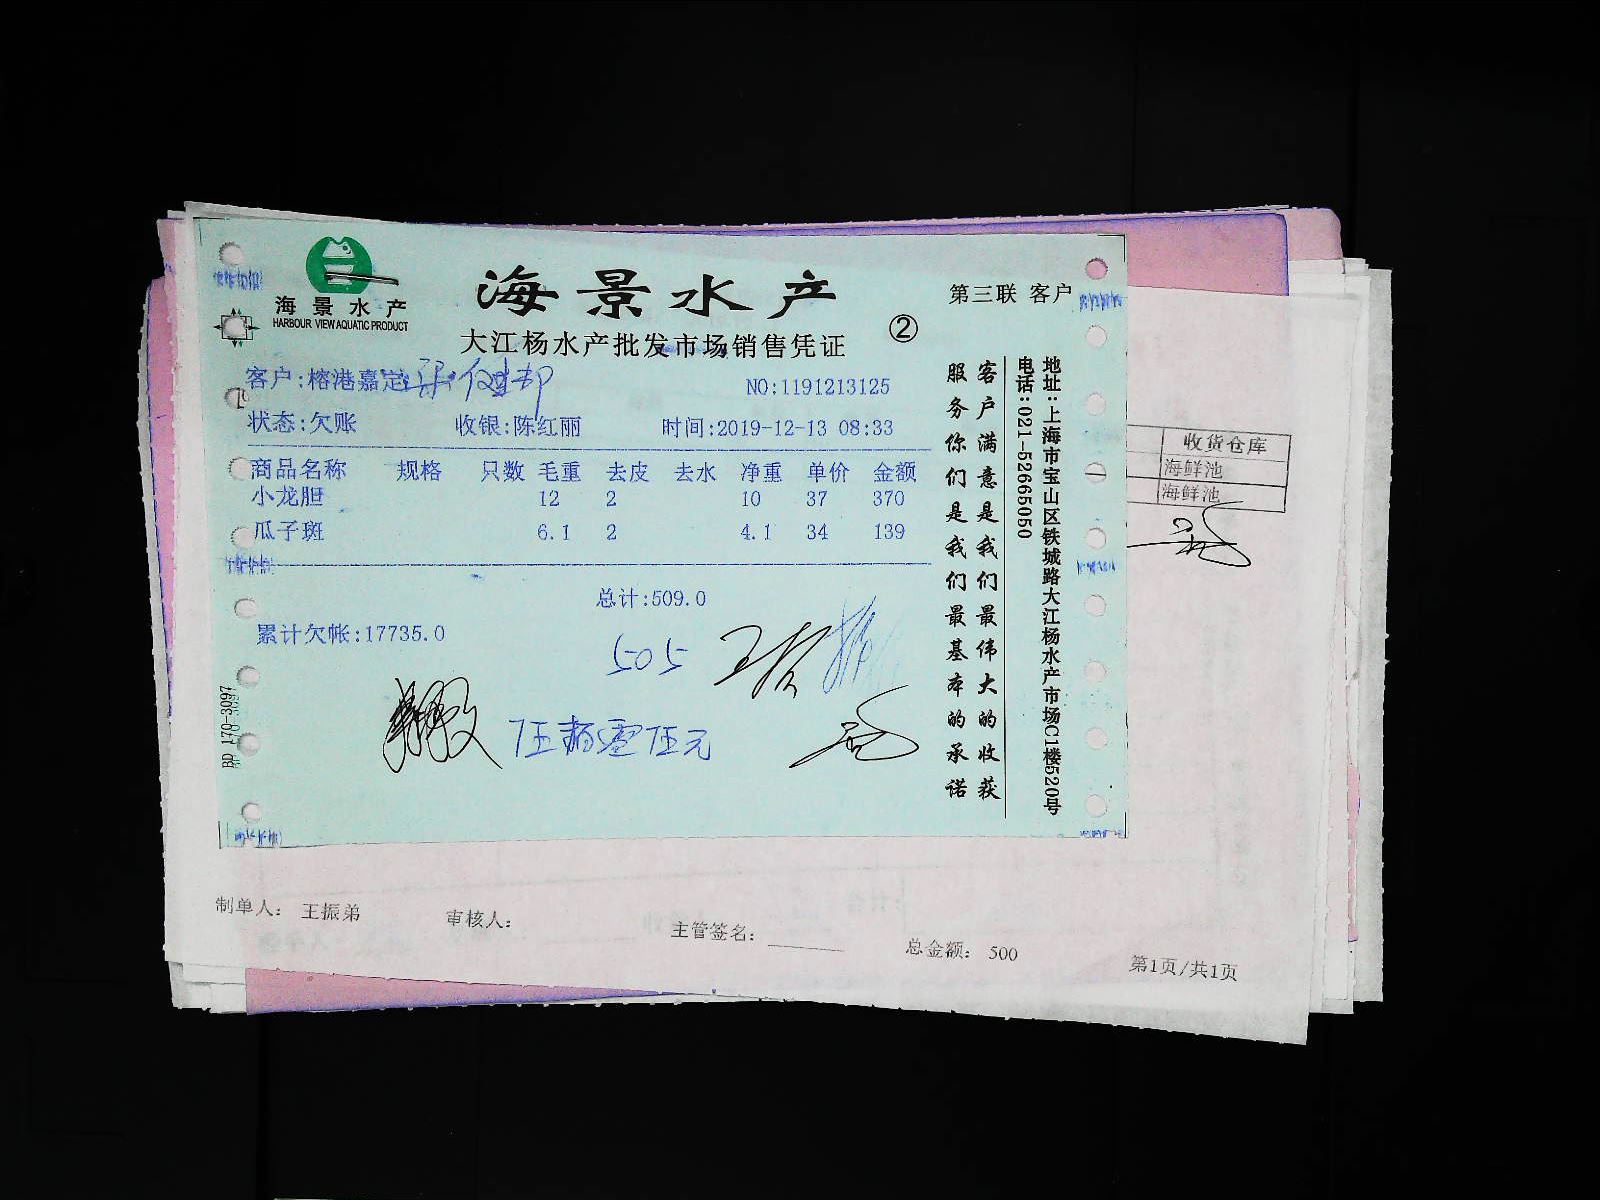 海景水产
HARBOUR VIEW AQUATIC PRODUCT
海景水产
第三联 客户
大江杨水产批发市场销售凭证
②
客户:榕港嘉定
NO:1191213125
状态:欠账 收银:陈红丽 时间:2019-12-13 08:33
商品名称 规格 只数 毛重 去皮 去水 净重 单价 金额
小龙胆 12 2 10 37 370
瓜子斑 6.1 2 4.1 34 139
总计:509.0
累计欠帐:17735.0
505
伍捌零伍元
BD 170-3097
客户满意是我们最伟大的收获
服务你们是我们最基本的承诺
地址:上海市宝山区铁城路大江杨水产市场C1楼520号
电话:021-52665050
收货仓库
海鲜池
海鲜池
制单人: 王振弟 审核人: 主管签名: 总金额: 500
第1页/共1页